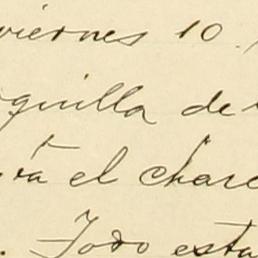 viernes 10.
quilla de
ta el charc
. Todo esta